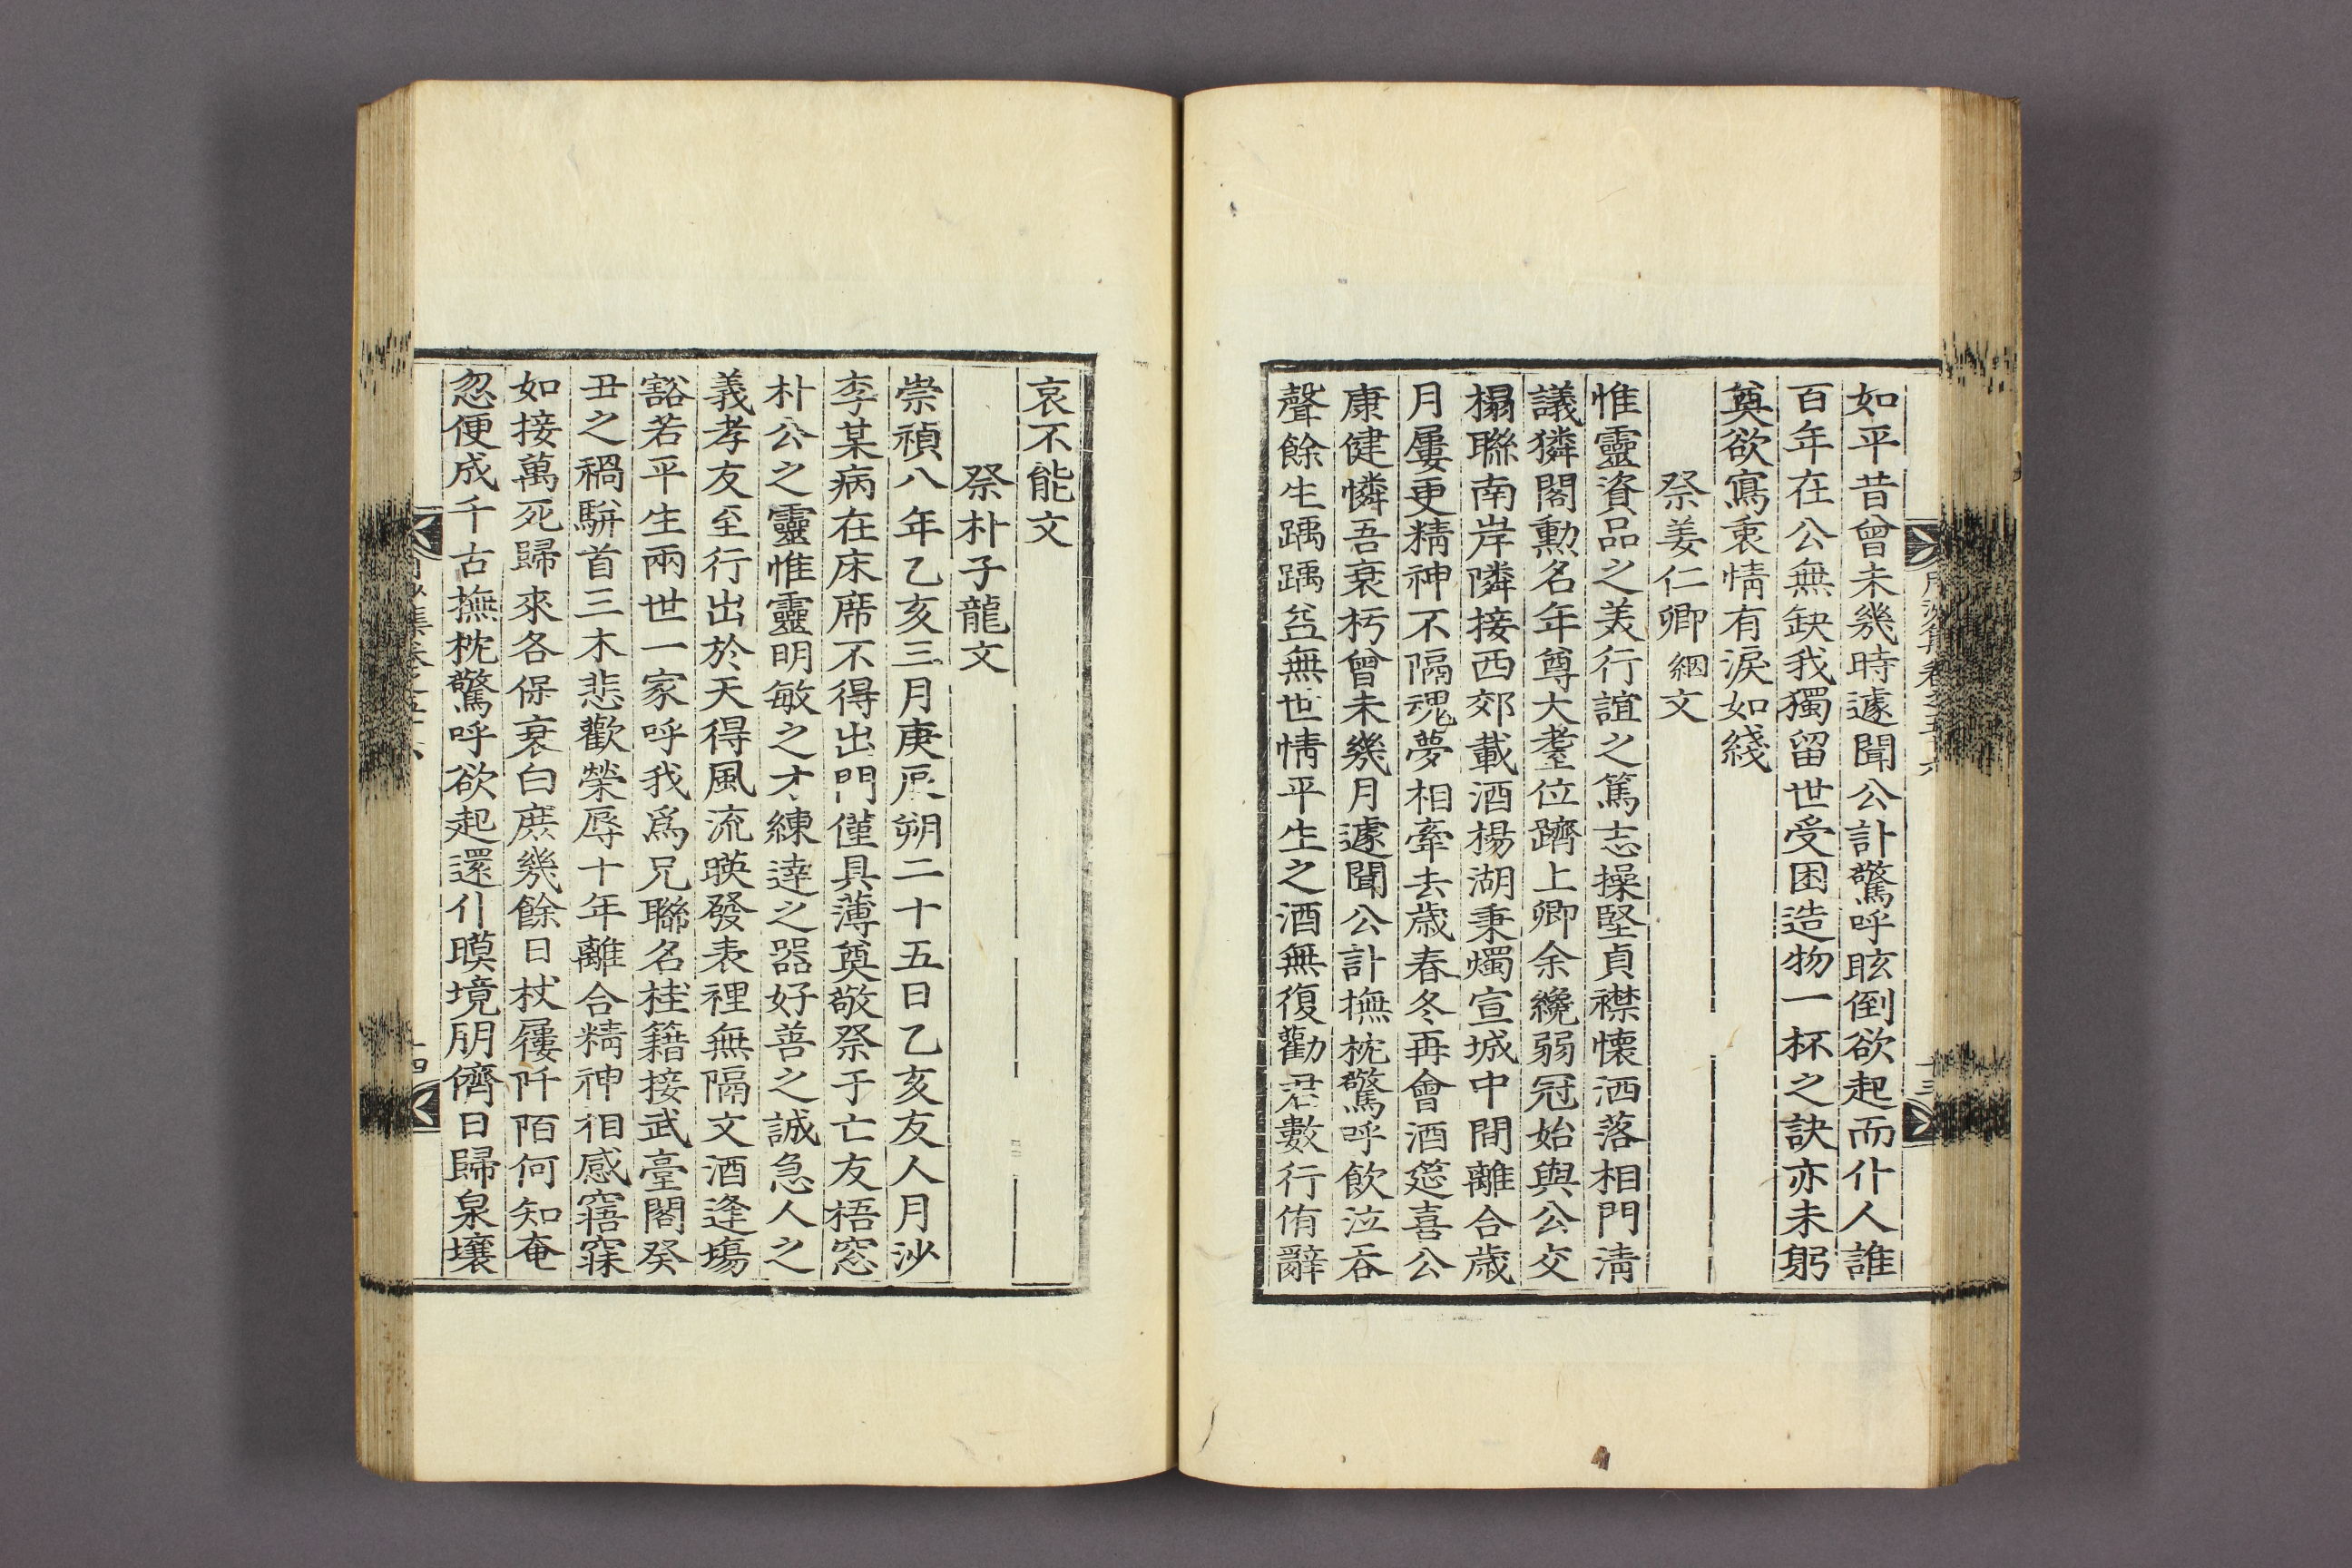 如平昔曾未幾時遽聞公訃驚呼眩倒欲起而仆人誰
百年在公無缺我獨留世受困造物一杯之訣亦未躬
奠欲寫衷情有淚如綫
祭姜仁卿絪文
惟靈資品之美行誼之篤志操堅貞襟懷洒落相門淸
議獜閣勳名年尊大耋位躋上卿余纔弱冠始與公交
榻聯南岸隣接西郊載酒楊湖秉燭宣城中間離合歲
月屢更精神不隔魂夢相牽去歲春冬再會酒筵喜公
康健憐吾衰朽曾未幾月遽聞公訃撫枕驚呼飮泣呑
聲餘生踽踽益無世情平生之酒無復勸君數行侑辭
哀不能文
祭朴子龍文
崇禎八年乙亥三月庚辰朔二十五日乙亥友人月沙
李某病在床席不得出門僅具薄奠敬祭于亡友梧窓
朴公之靈惟靈明敏之才練達之器好善之誠急人之
義孝友至行出於天得風流暎發表裡無隔文酒逢塲
豁若平生兩世一家呼我爲兄聯名桂籍接武臺閣癸
丑之禍騈首三木悲歡榮辱十年離合精神相感寤寐
如接萬死歸來各保衰白庶幾餘日杖屨阡陌何知奄
忽便成千古撫枕驚呼欲起還仆暯境朋儕日歸泉壤